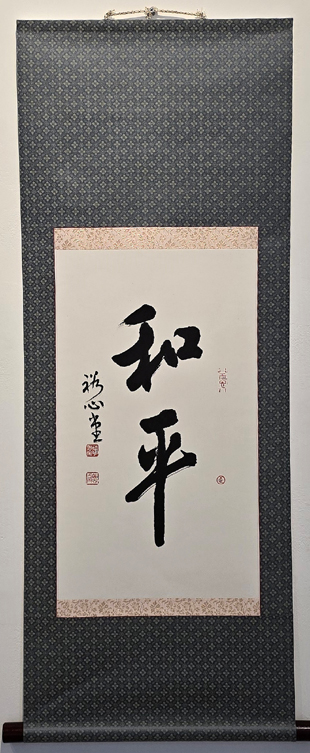 和平
心堂